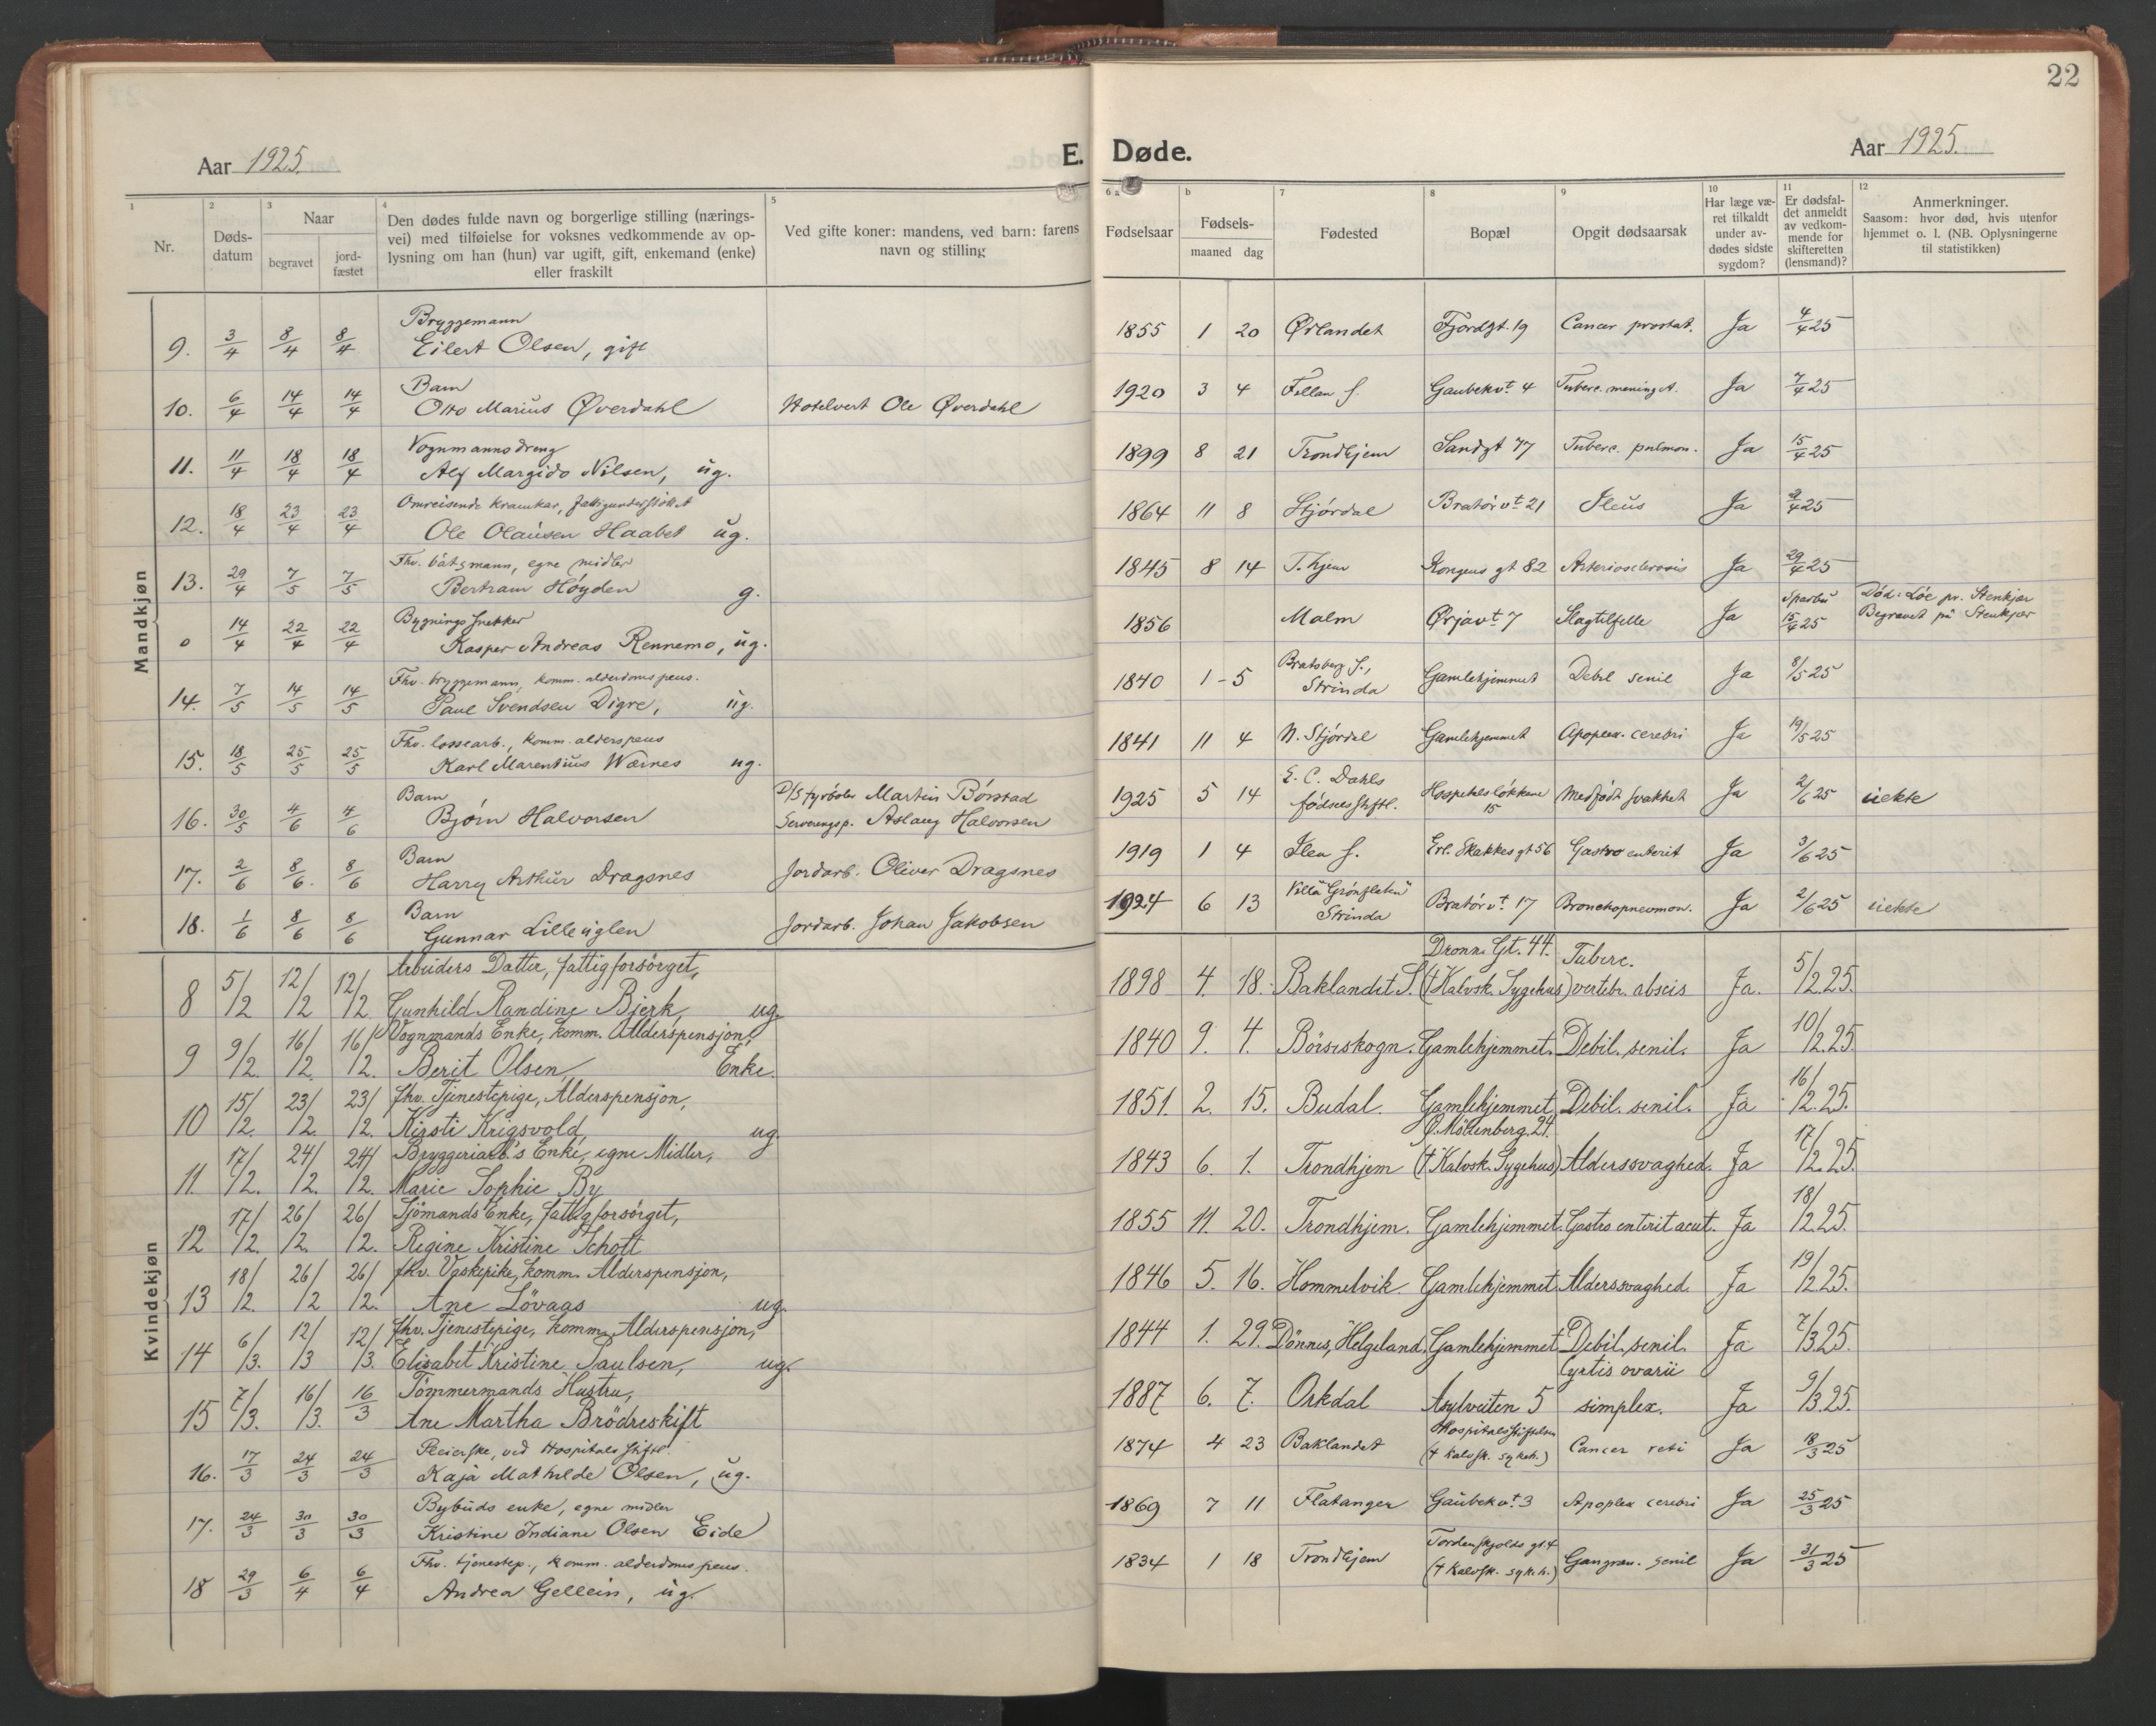 22
Aar 1925.
E. Døde.
Aar 1925.
1 Nr.
2 Døds-datum
3 Naar
begravet
jord-fæstet
4 Den dødes fulde navn og borgerlige stilling (nærings-
vei) med tilføielse for voksnes vedkommende av op-
lysning om han (hun) var ugift, gift, enkemand (enke)
eller fraskilt
5 Ved gifte koner: mandens, ved barn: farens
navn og stilling
6 a Fødselsaar
b Fødsels-
maaned dag
7 Fødested
8 Bopæl
9 Opgit dødsaarsak
10 Har læge væ-
ret tilkaldt
under av-
dødes sidste
sygdom?
11 Er dødsfal-
det anmeldt
av vedkom-
mende for
skifteretten
(lensmand)?
12 Anmerkninger.
Saasom: hvor død, hvis utenfor
hjemmet o. l. (NB. Oplysningerne
til statistikken)
Mandkjøn
Bryggemann
9. 3/4 8/4 8/4 Eilert Olsen, gift 1855 1 20 Ørlandet Fjordgt. 19 Cancer prostat. Ja 4/4 25
Barn
10. 6/4 14/4 14/4 Otto Marius Øverdahl Hotelvert Ole Øverdahl 1920 3 4 Gaubekvt 4 Tuberc. meningit. Ja 7/4 25
Vognmannsdreng
11. 11/4 18/4 18/4 Alf Margido Nilsen, ug. 1899 8 21 Trondhjem Sandgt 77 Tuberc. pulmon. Ja 15/4 25
Omreisende kramkar, fattigunderstøttet
12. 18/4 23/4 23/4 Ole Olausen Haabet ug. 1864 11 8 Stjørdal Bratørvt 21 Ileus Ja
Fhv. båtsmann, egne midler
13. 29/4 7/5 7/5 Bertram Høyden g. 1845 8 14 T.hjem Kongens gt 82 Arteriosclerosis Ja 29/4 25
Bygningssnekker
0 14/4 22/4 22/4 Kasper Andreas Rennemo, ug. 1856 Malm Ørjavt 7 Slagtilfelle Ja Sparbu 15/4 25 Død: Løe pr. Stenkjær
Begravet på Stenkjær
Fhv. bryggemann, komm. alderdoms pens.
14. 7/5 14/5 14/5 Paul Svendsen Digre, ug. 1840 1 - 5 Bratsberg s., Strinda Gamlehjemmet Debil. senil Ja 8/5 25
Fhv. lossearb., komm. alderspens
15. 18/5 25/5 25/5 Karl Marentius Wærnes ug. 1841 11 4 N. Stjørdal Gamlehjemmet Apoplex. cerebri Ja 19/5 25
Barn D/S fyrbøter Martin Børstad
16. 30/5 4/6 4/6 Bjørn Halvorsen Serveringsp. Aslaug Halvorsen 1925 5 14 E. C. Dahls fødselsstiftl. Hospitalsløkkene 15 Medfødt svakhet Ja 2/6 25 uekte
Barn
17. 2/6 8/6. 8/6 Harry Arthur Dragsnes Jordarb. Oliver Dragsnes 1919 1 4 Ilen s. Erl. Skakkes gt 56 Gastro enterit Ja 3/6 25
Barn
18. 1/6 8/6 8/6 Gunnar Lilleuglen Jordarb. Johan Jakobsen 1924 6 13 Villa "Grønflaten" Strinda Bratørvt 17 Bronchopneumon. Ja 2/6 25 uekte
Kvindekjøn
Arbeiders Datter, fattigforsørget,
8 5/2 12/2 12/2 Gunhild Randine Bjerk, ug. 1898 4. 18. Baklandet S. Dronn. Gt. 44. († Kalvsk. Sygehus) Tuberc. vertebr. abscis Ja. 5/2.25.
Vognmands Enke, komm. Alderspensjon,
9 9/2. 16/2. 16/2. Berit Olsen, Enke. 1840 9. 4. Börseskogn. Gamlehjemmet. Debil. senil. Ja 10/2.25.
fhv. Tjenestepige, Alderspensjon,
10 15/2. 23/2. 23/2. Kirsti Krigsvold, ug. 1851. 2. 15. Budal. Gamlehjemmet. Debil. senil. Ja 16/2.25.
Bryggeriarb.'s Enke, egne Midler,
11. 17/2. 24/2. 24/2. Marie Sophie By 1843 6. 1. Trondhjem Ø. Möllenberg. 24. († Kalvsk. Sygehus) Alderssvaghed. Ja 17/2.25.
Sjömands Enke, fattigforsörget,
12 17/2. 26/2. 26/2. Regine Kristine Schott 1855 11. 20. Trondhjem. Gamlehjemmet. Gastro enterit acut. Ja 18/2.25.
fhv. Vaskepike, komm. Alderspensjon,
13 18/2. 26/2 26/2. Ane Lövaas ug. 1846 5. 16. Hommelvik. Gamlehjemmet Alderssvaghed. Ja 19/2.25.
fhv. Tjenestepige, komm. Alderspensjon,
14 6/3. 12/3 12/3. Elisabet Kristine Paulsen, ug. 1844 1. 29. Dönnes, Helgeland. Gamlehjemmet Debil. senil. Ja 7/3.25.
Tömmermands Hustru,
15 7/3. 16/3. 16/3 Ane Martha Brödreskift 1887 6. 7. Orkdal Asylveiten 5 Cystis ovarii simplex. Ja 9/3.25.
Pleierske, ved Hospitals stiftl.
16. 17/3 24/3 24/3 Kaja Mathilde Olsen, ug. 1874 4 23 Baklandet Hospitalsstiftelsen († Kalvsk. sykeh.) Cancer Ja 18/3 25
Bybuds enke, egne midler
17. 24/3 30/3 30/3 Kristine Indiane Olsen Eide 1869 7 11 Flatanger Gaubekvt. 3 Apoplex cerebri Ja 25/3 25
Fhv. tjenestep., komm. alderdoms pens.
18 29/3 6/4 6/4 Andrea Gellein, ug. 1834 1 18 Trondhjem Tordenskjolds gt. 4 († Kalvsk. sykeh.) Gangræn. senil Ja 31/3 25